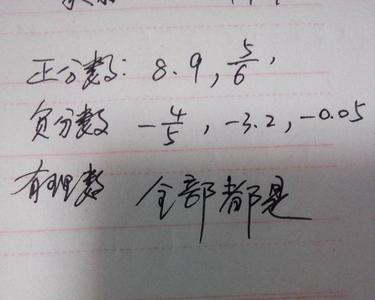 正分数: 8.9, 5/6,
负分数 -4/5, -3.2, -0.05
有理数 全部都是